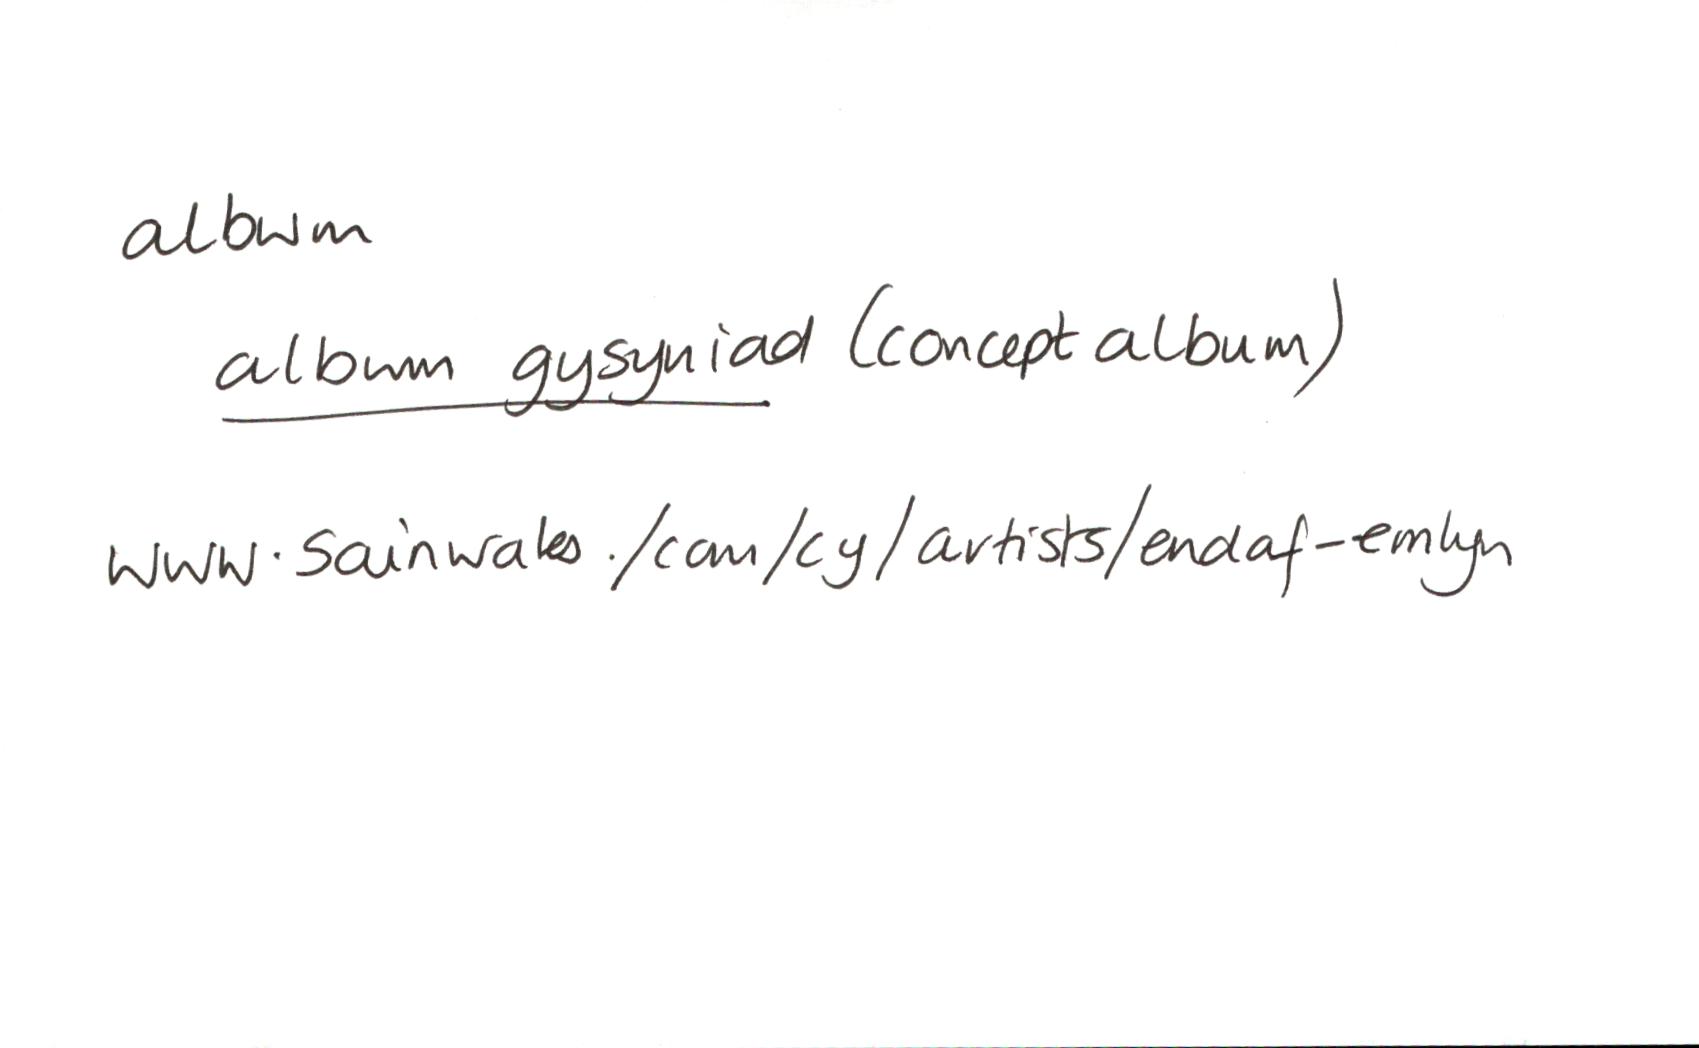 albwm
albwm gysyniad (concept album)
www.sainwales./com/cy/artists/endaf-emlyn